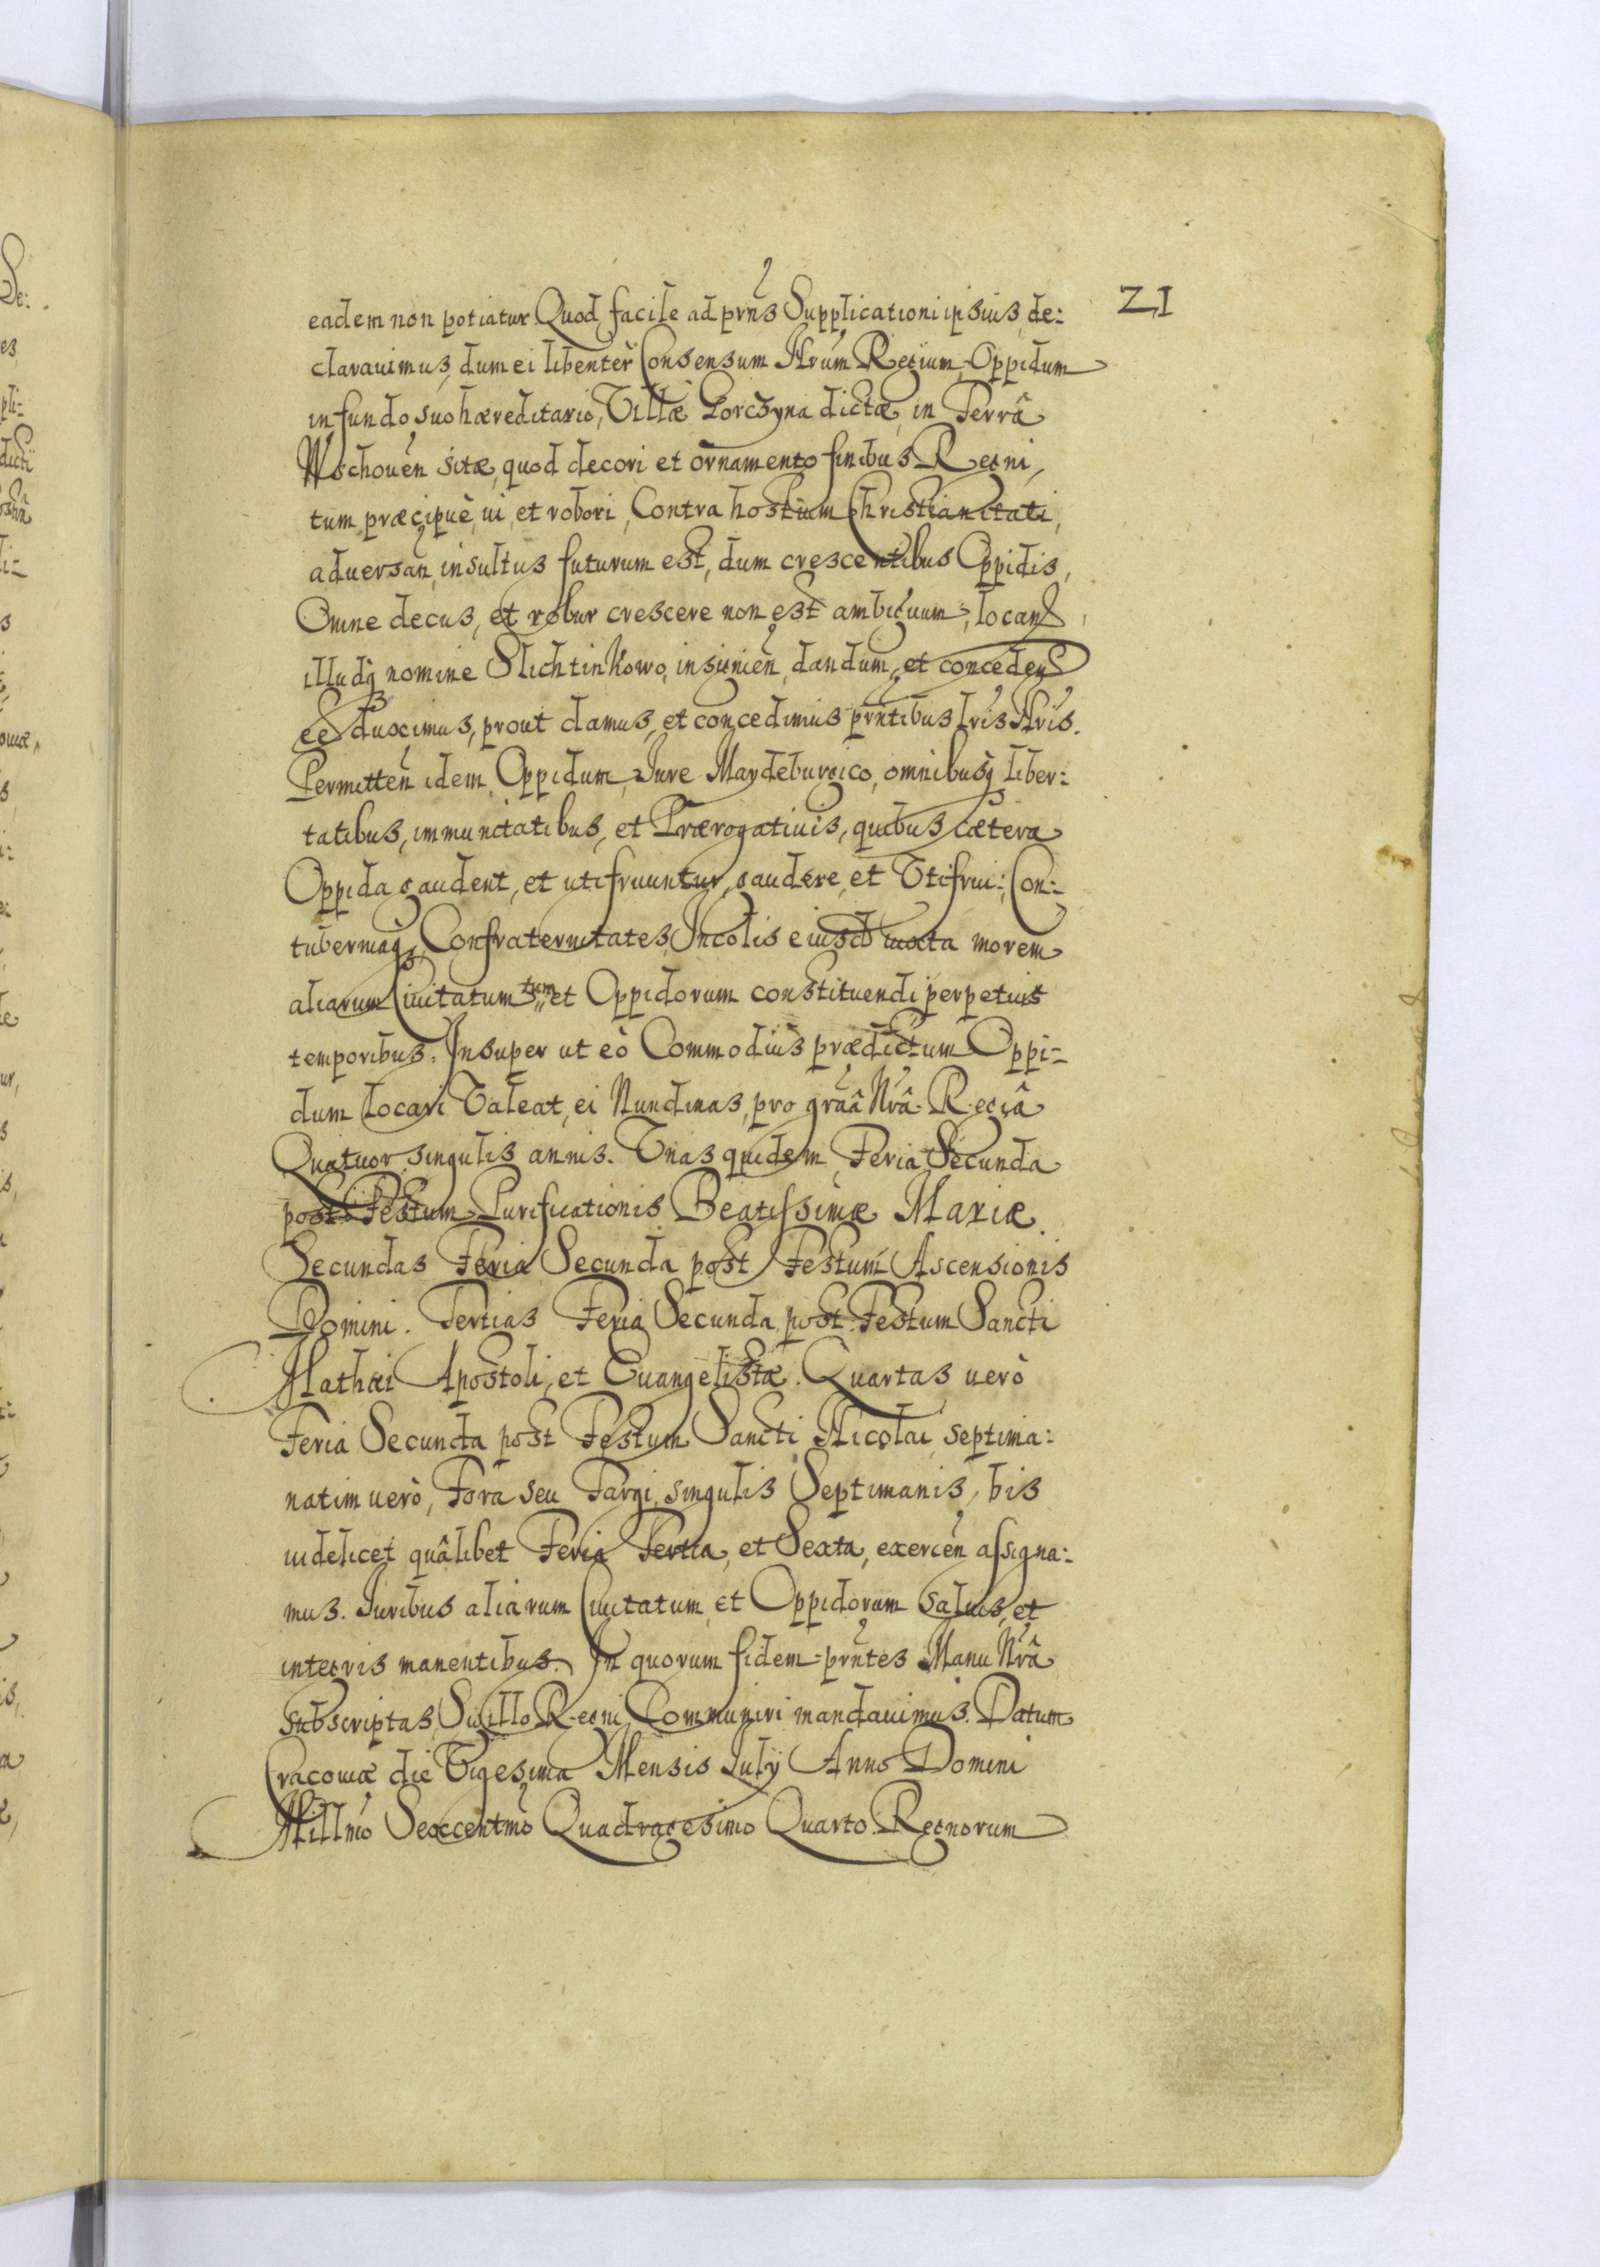 21
eadem non potiatur Quod facile ad prns Supplicationi ipsius, de:
clarauimus, dum ei libentèr Consensum Nrum Regium, Oppidum
in fundo suo hæreditario, Villæ Gorczyna dictæ, in Terrâ
Wschouen sitæ, quod decori et òrnamento finibus Regni,
tum præcipuè, ui, et robori, Contra hostium Christianitati,
aduersan, insultus futurum est, dum crescentibus Oppidis,
Omne decus, et robur crescere non est ambiguum, locand
illudq nomine Slichtinkowo, insignien, dandum, et concedend
eẽ duximus, prout damus, et concedimus prntibus lris Nris.
Permitten idem, Oppidum, Jure Maydeburgico, omnibusq liber:
tatibus, immunitatibus, et Prærogatiuis, quibus cætera
Oppida gaudent, et utifruuntur, gaudere, et Vtifrui: Con:
tuberniaq, Confraternitates, Incolis eiusd iuxta morem
aliarum Ciuitatum tum et Oppidorum constituendi perpetuis
temporibus. Insuper ut eò Commodius prædictum Oppi:
dum locari Valeat, ei Nundinas, pro graâ Nrâ Regiâ
Quatuor singulis annis. Vnas quidem, Feria Secunda
post Festum Purificationis Beatissimæ Mariæ
Secundas Feria Secunda post Festum Ascensionis
Domini. Tertias Feria Secunda post Festum Sancti
Mathæi Apostoli, et Euangelistæ. Quartas uerò
Feria Secunda post Festum Sancti Nicolai, septima:
natim uerò, Fora seu Targi, singulis Septimanis, bis
uidelicet quâlibet Feria Tertia, et Sexta, exercen assigna:
mus. Iuribus aliarum Ciuitatum, et Oppidorum saluis, et
integris manentibus. In quorum fidem prntes Manu Nrâ
subscriptas, Sigillo Regni Communiri mandauimus. Datum
Cracouiæ die Vigesima Mensis Iulÿ Anno Domini
Millmo Sexcentmo Quadragesimo Quarto. Regnorum